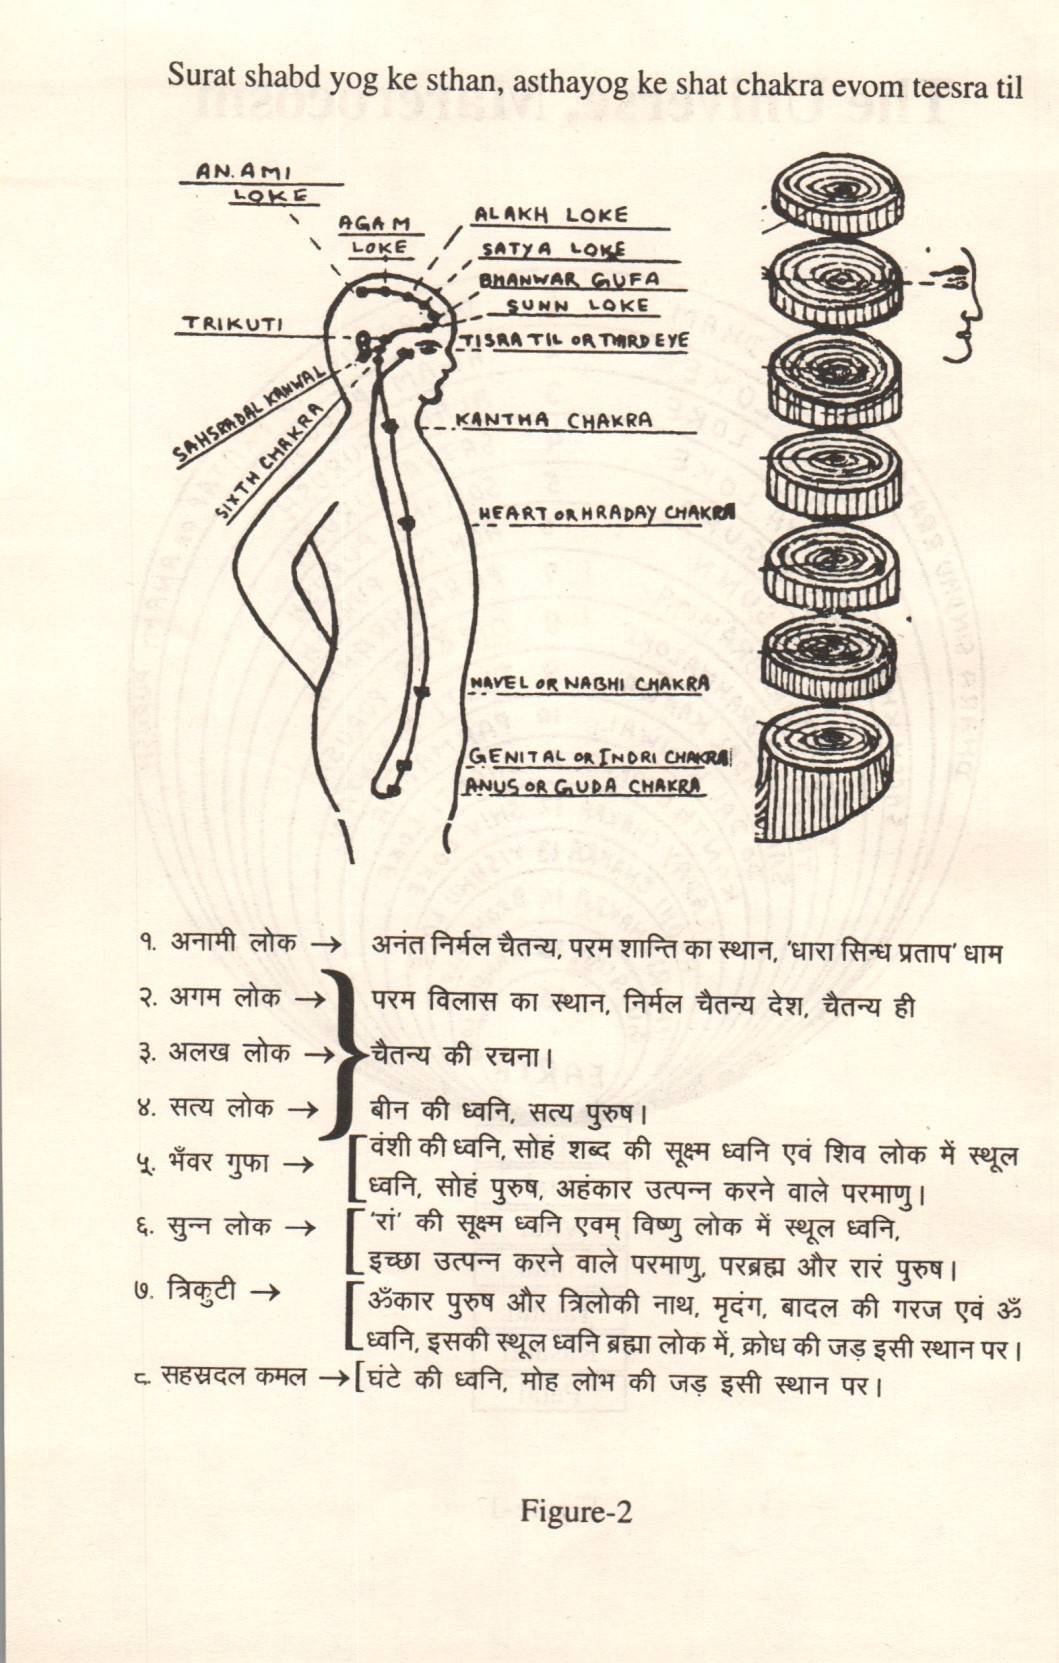 Surat shabd yog ke sthan, asthayog ke shat chakra evom teesra til
AN.AMI
LOKE
AGAM
LOKE
ALAKH LOKE
SATYA LOKE
BHANWAR GUFA
SUNN LOKE
TRIKUTI
TISRA TIL OR THIRD EYE
SAHSRADAL KANWAL
SIXTH CHAKRA
KANTHA CHAKRA
HEART OR HRADAY CHAKRA
NAVEL OR NABHI CHAKRA
GENITAL OR INDRI CHAKRA
ANUS OR GUDA CHAKRA
१. अनामी लोक → अनंत निर्मल चैतन्य, परम शान्ति का स्थान, 'धारा सिन्ध प्रताप' धाम
२. अगम लोक → परम विलास का स्थान, निर्मल चैतन्य देश, चैतन्य ही
३. अलख लोक → चैतन्य की रचना।
४. सत्य लोक → बीन की ध्वनि, सत्य पुरुष।
५. भँवर गुफा → [वंशी की ध्वनि, सोहं शब्द की सूक्ष्म ध्वनि एवं शिव लोक में स्थूल
ध्वनि, सोहं पुरुष, अहंकार उत्पन्न करने वाले परमाणु।
६. सुन्न लोक → ['रां' की सूक्ष्म ध्वनि एवम् विष्णु लोक में स्थूल ध्वनि,
इच्छा उत्पन्न करने वाले परमाणु, परब्रह्म और रारं पुरुष।
७. त्रिकुटी → [ॐकार पुरुष और त्रिलोकी नाथ, मृदंग, बादल की गरज एवं ॐ
ध्वनि, इसकी स्थूल ध्वनि ब्रह्मा लोक में, क्रोध की जड़ इसी स्थान पर।
८. सहस्रदल कमल → [घंटे की ध्वनि, मोह लोभ की जड़ इसी स्थान पर।
Figure-2